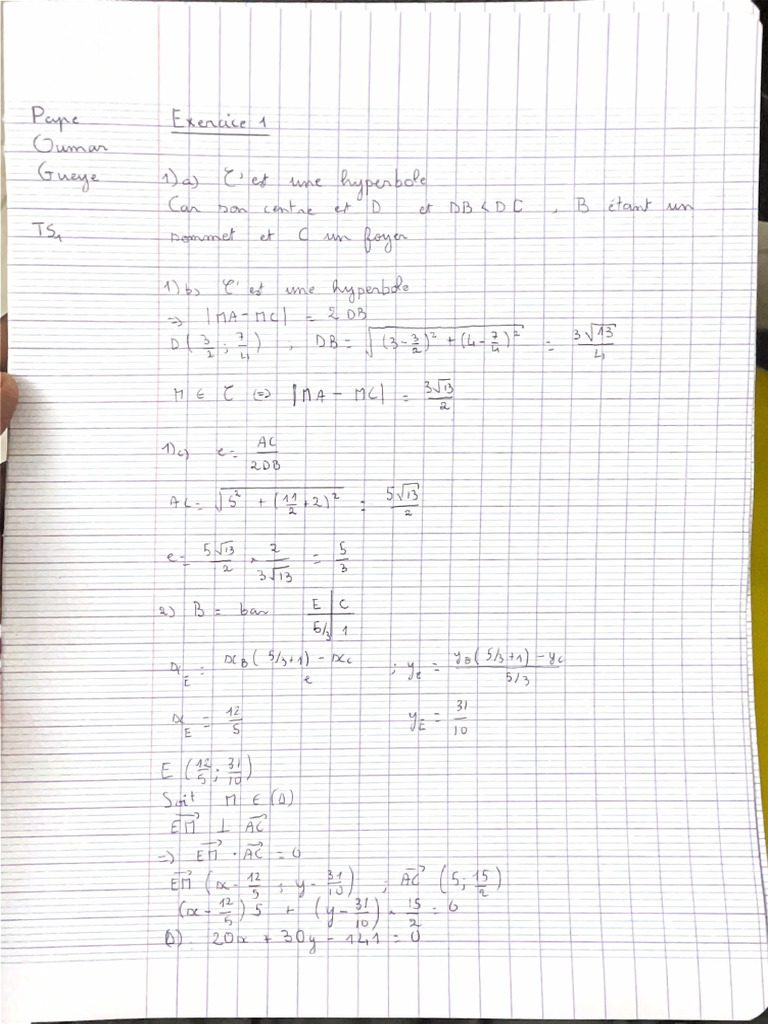 Pape
Oumar
Gueye
TS₁
Exercice 1
1)a) C est une hyperbole
Car son centre est D et DB < DC , B étant un
sommet et C un foyer
1)b) C est une hyperbole
⇒ |MA - MC| = 2DB
D(3/2 ; 7/4) , DB = √((3 - 3/2)² + (4 - 7/4)²) = 3√13/4
M ∈ C ⇔ |MA - MC| = 3√13/2
1)c) e = AC/2DB
AC = √(5² + (11/2 + 2)²) = 5√13/2
e = 5√13/2 × 2/3√13 = 5/3
2) B = bar E | C
5/3 | 1
x_E = (x_B(5/3+1) - x_C)/e ; y_E = (y_B(5/3+1) - y_C)/(5/3)
x_E = 12/5 y_E = 31/10
E (12/5 ; 31/10)
Soit M ∈ (Δ)
EM⃗ ⊥ AC⃗
⇒ EM⃗ · AC⃗ = 0
EM⃗ (x - 12/5 ; y - 31/10) ; AC⃗ (5 ; 15/2)
(x - 12/5) 5 + (y - 31/10) × 15/2 = 0
(Δ) 20x + 30y - 141 = 0